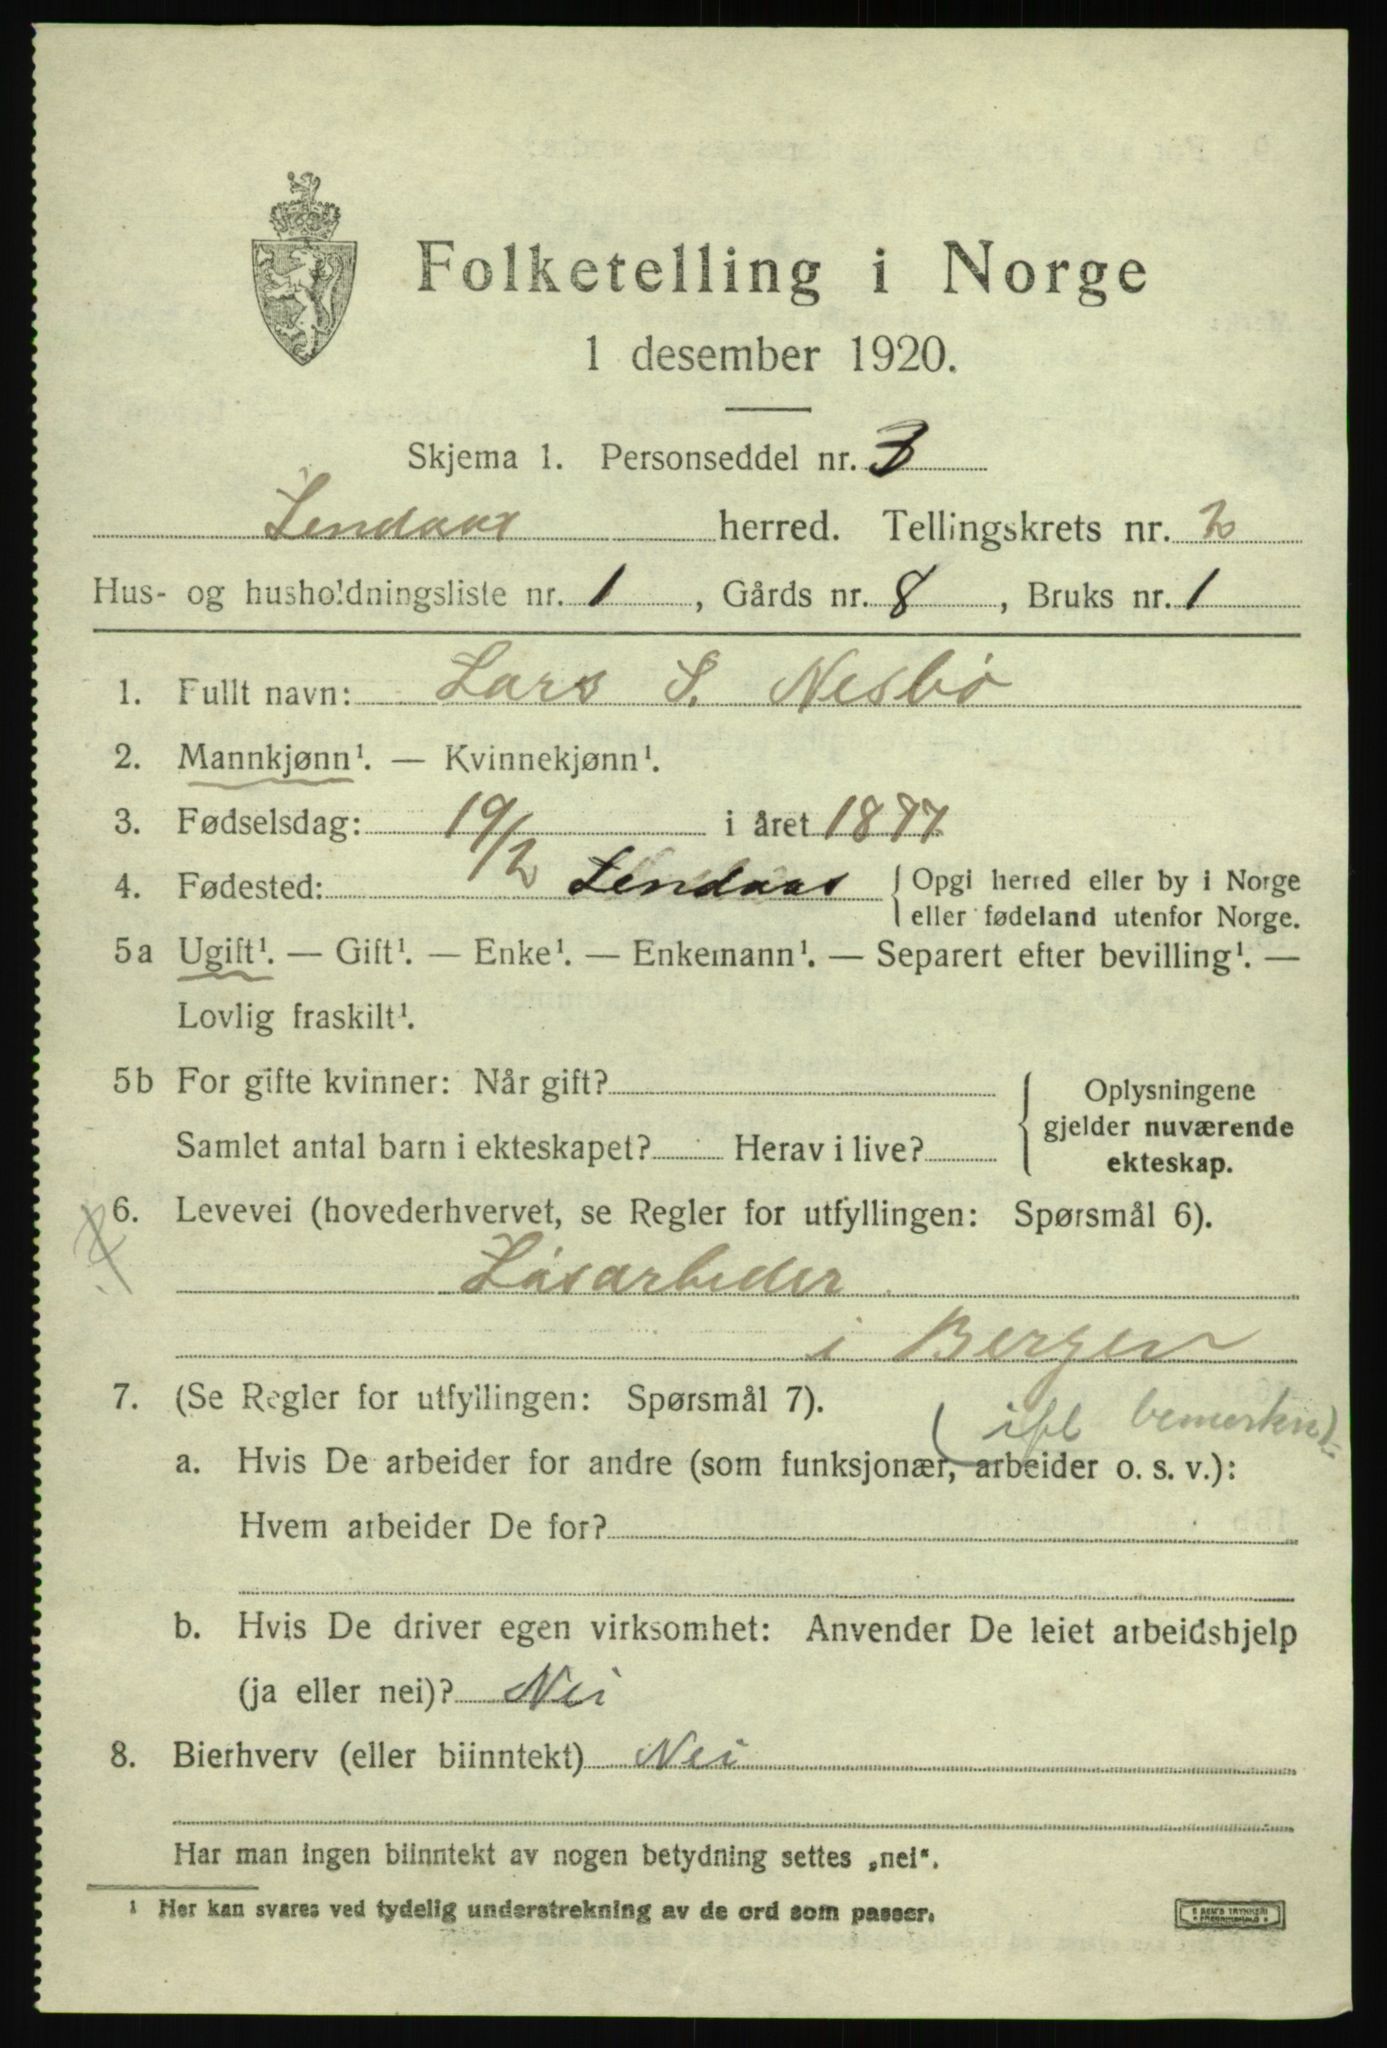 Folketelling i Norge
1 desember 1920.
Skjema 1. Personseddel nr. 3
Lendaas herred. Tellingskrets nr. 2
Hus- og husholdningsliste nr. 1, Gårds nr. 8, Bruks nr. 1
1. Fullt navn: Lars S. Nesbö
2. Mannkjønn¹. — Kvinnekjønn¹.
3. Fødselsdag: 19/2 i året 1897
4. Fødested: Lendaas { Opgi herred eller by i Norge
eller fødeland utenfor Norge.
5a Ugift¹. — Gift¹. — Enke¹. — Enkemann¹. — Separert efter bevilling¹. —
Lovlig fraskilt¹.
5b For gifte kvinner: Når gift?
Samlet antal barn i ekteskapet? Herav i live?
{ Oplysningene
gjelder nuværende
ekteskap.
6. Levevei (hovederhvervet, se Regler for utfyllingen: Spørsmål 6).
Lösarbeder
i Bergen
7. (Se Regler for utfyllingen: Spørsmål 7).
(ifl bemerkn)
a. Hvis De arbeider for andre (som funksjonær, arbeider o. s. v.):
Hvem arbeider De for?
b. Hvis De driver egen virksomhet: Anvender De leiet arbeidshjelp
(ja eller nei)? Nei
8. Bierhverv (eller biinntekt) Nei
Har man ingen biinntekt av nogen betydning settes „nei“.
¹ Her kan svares ved tydelig understrekning av de ord som passer.